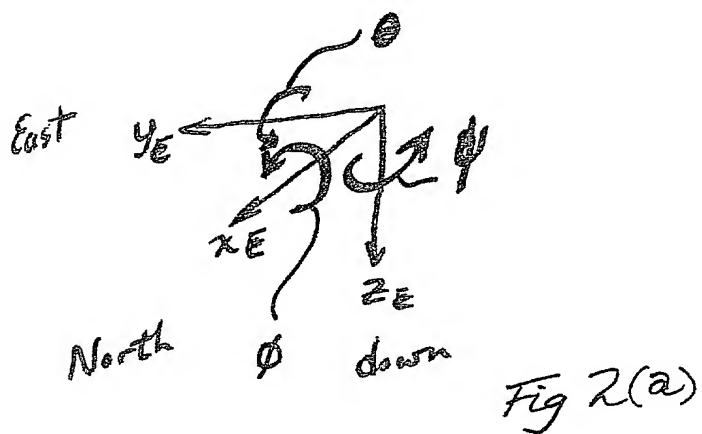 θ
East y_E
ψ
x_E
z_E
North φ down
Fig 2(a)